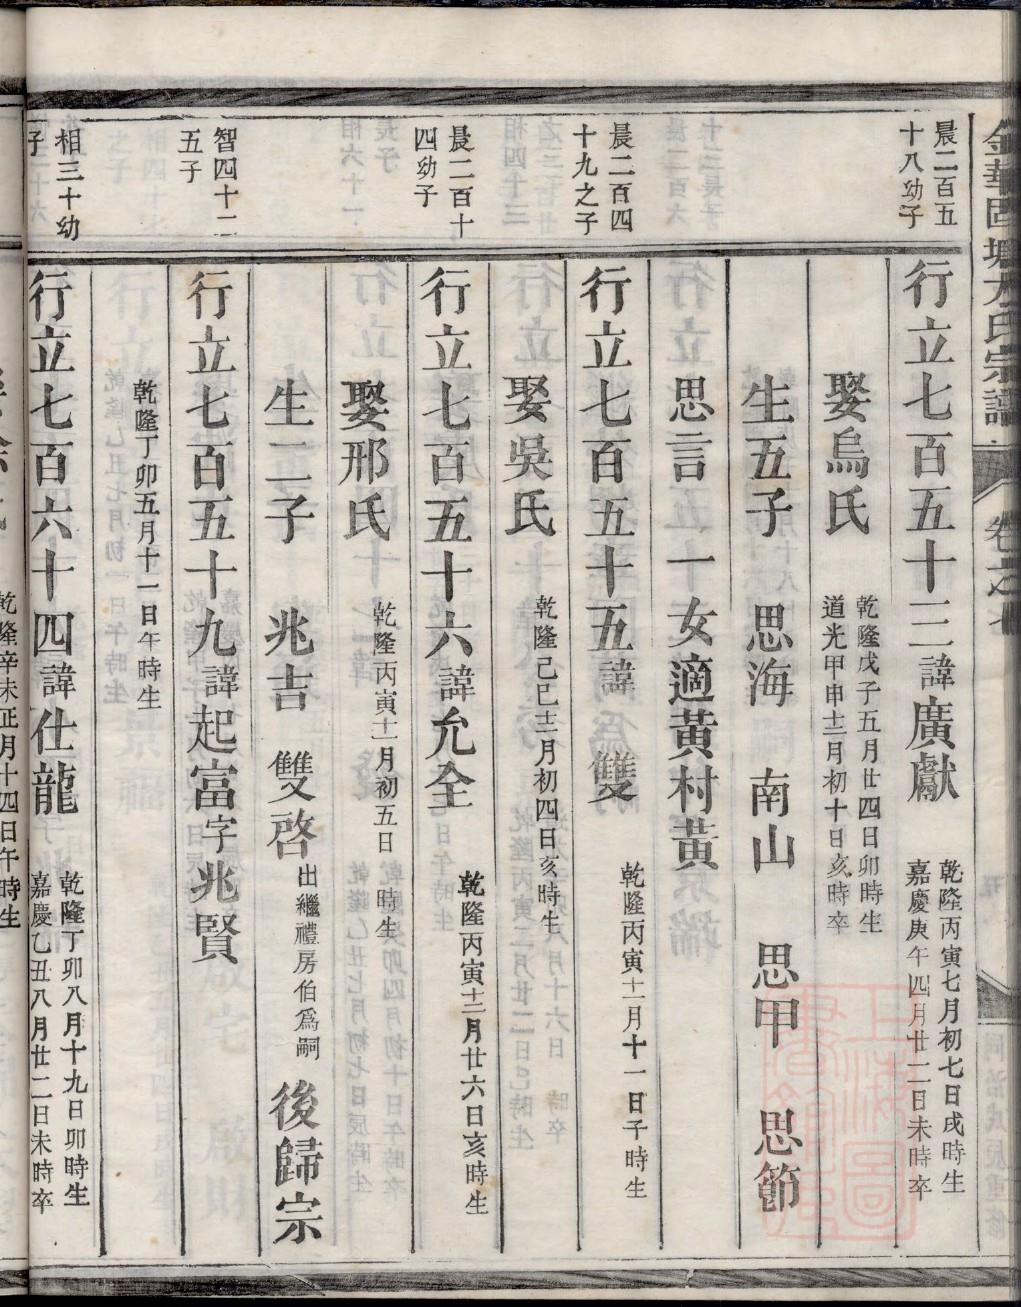 金華
氏宗譜
卷之七
晨二百五
十八幼子
行立七百五十三諱廣獻
乾隆丙寅七月初七日戌時生
嘉慶庚午四月廿二日未時卒
娶烏氏
乾隆戊子五月廿四日卯時生
道光甲申十二月初十日亥時卒
生五子 思海 南山 思甲 思節
思言 一女適黃村黃
晨二百四
十九之子
行立七百五十五諱雙
乾隆丙寅十一月十一日子時生
娶吳氏
乾隆己巳十二月初四日亥時生
晨二百十
四幼子
行立七百五十六諱允全
乾隆丙寅十二月廿六日亥時生
娶邢氏
乾隆丙寅十一月初五日 時生
生二子 兆吉 雙啓出繼禮房伯爲嗣 後歸宗
智四十二
五子
行立七百五十九諱起富字兆賢
乾隆丁卯五月十一日午時生
相三十幼
子
行立七百六十四諱仕龍
乾隆丁卯八月十九日卯時生
嘉慶乙丑八月廿二日未時卒
乾隆辛未正月十四日午時生